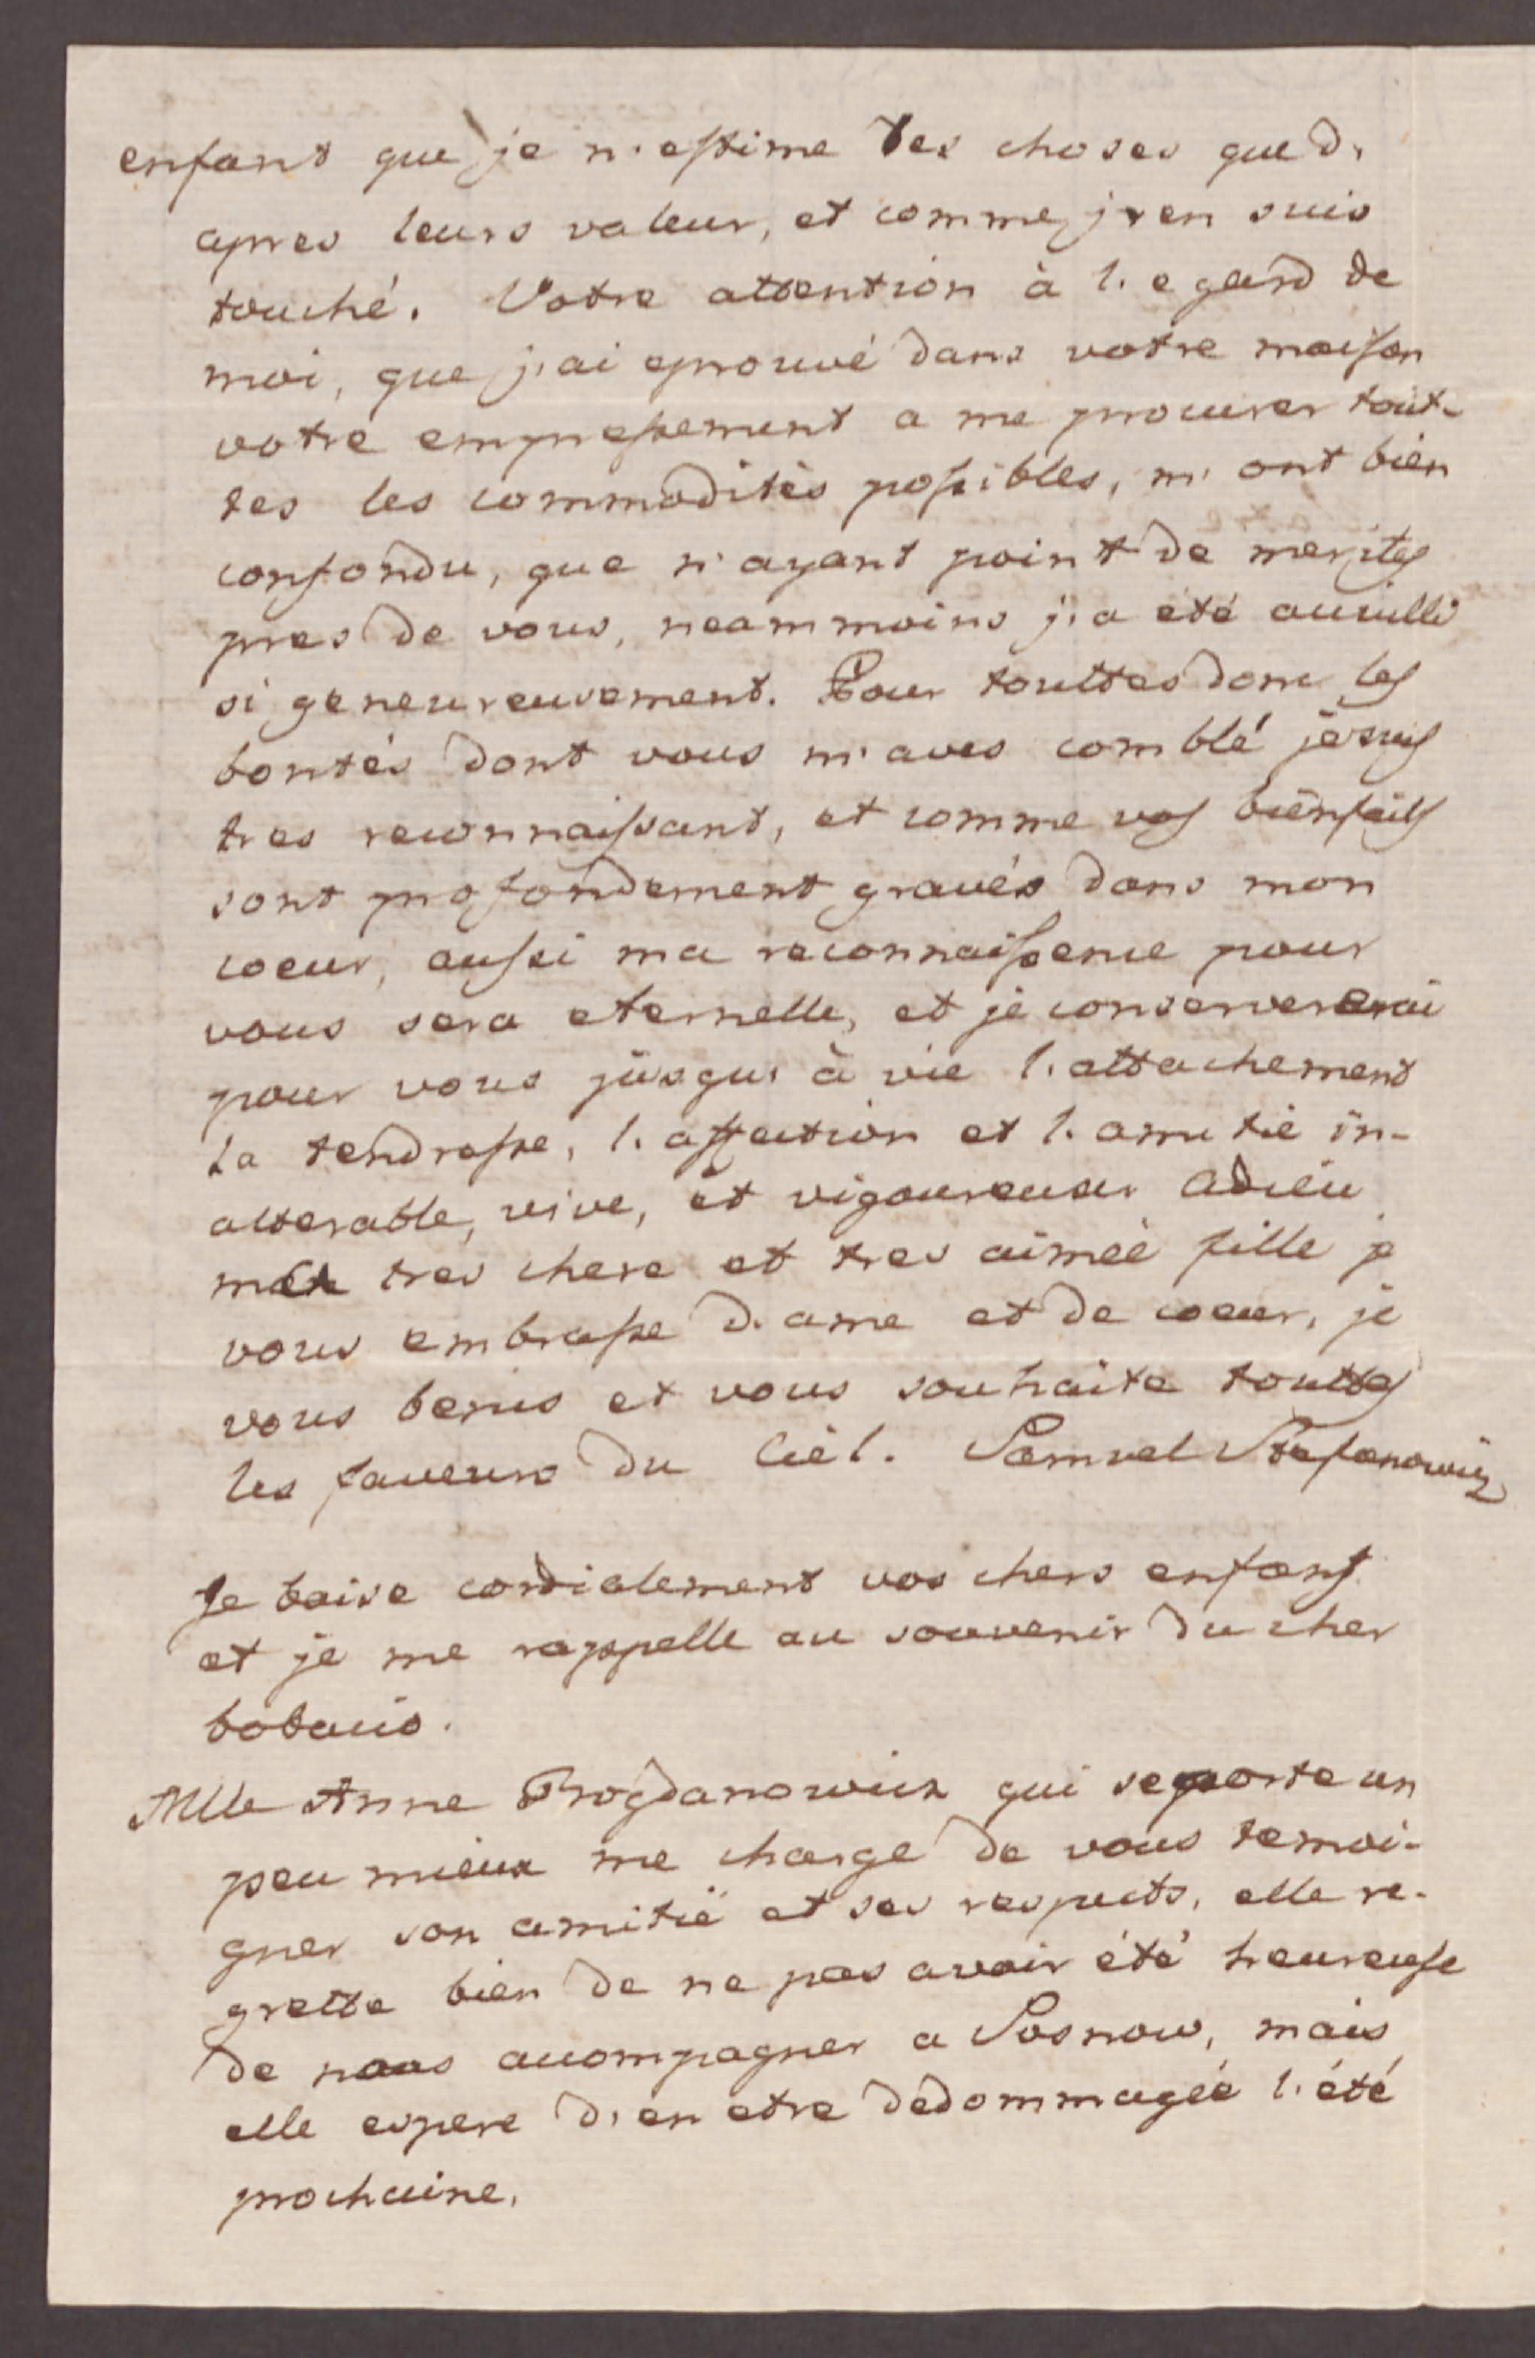 enfant que je n'estime les choses que d'
apres leurs valeur, et comme j'en suis
touché. Votre attention à l'egard de
moi, que j'ai eprouvé dans votre maison
votre empressement a me procurer tout-
tes les commodités possibles, m'ont bien
confondu, que n'ayant point de merites
pres de vous, neammoins j'a été acuilli
si geneureusement. Pour touttes donc les
bontés dont vous m'aves comblé je suis
tres reconnaissant, et comme vos bienfaits
sont profondement gravés dans mon
coeur, aussi ma reconnaissence pour
vous sera eternelle, et je conservererai
pour vous jusqu' à vie l'attachement
la tendresse, l'affection et l'amitié in-
alterable, vive, et vigoureuse Adieu
ma tres chere et tres aimée fille je
vous embrasse d'ame et de coeur, je
vous benis et vous souhaite touttes
les faveurs du Ciél. Samuel Stefanowicz
Je baise cordialement vos chers enfans
et je me rappelle au souvenir du cher
Mlle Anne Bogdanowicz qui se porte un
peu mieux me charge de vous temoi-
gner son amitié et ses respects, elle re-
grette bien de ne pas avoir été heureuse
de nous acompagner a Sosnow, mais
elle espere d'en etre dédommagée l'été
prochaine.